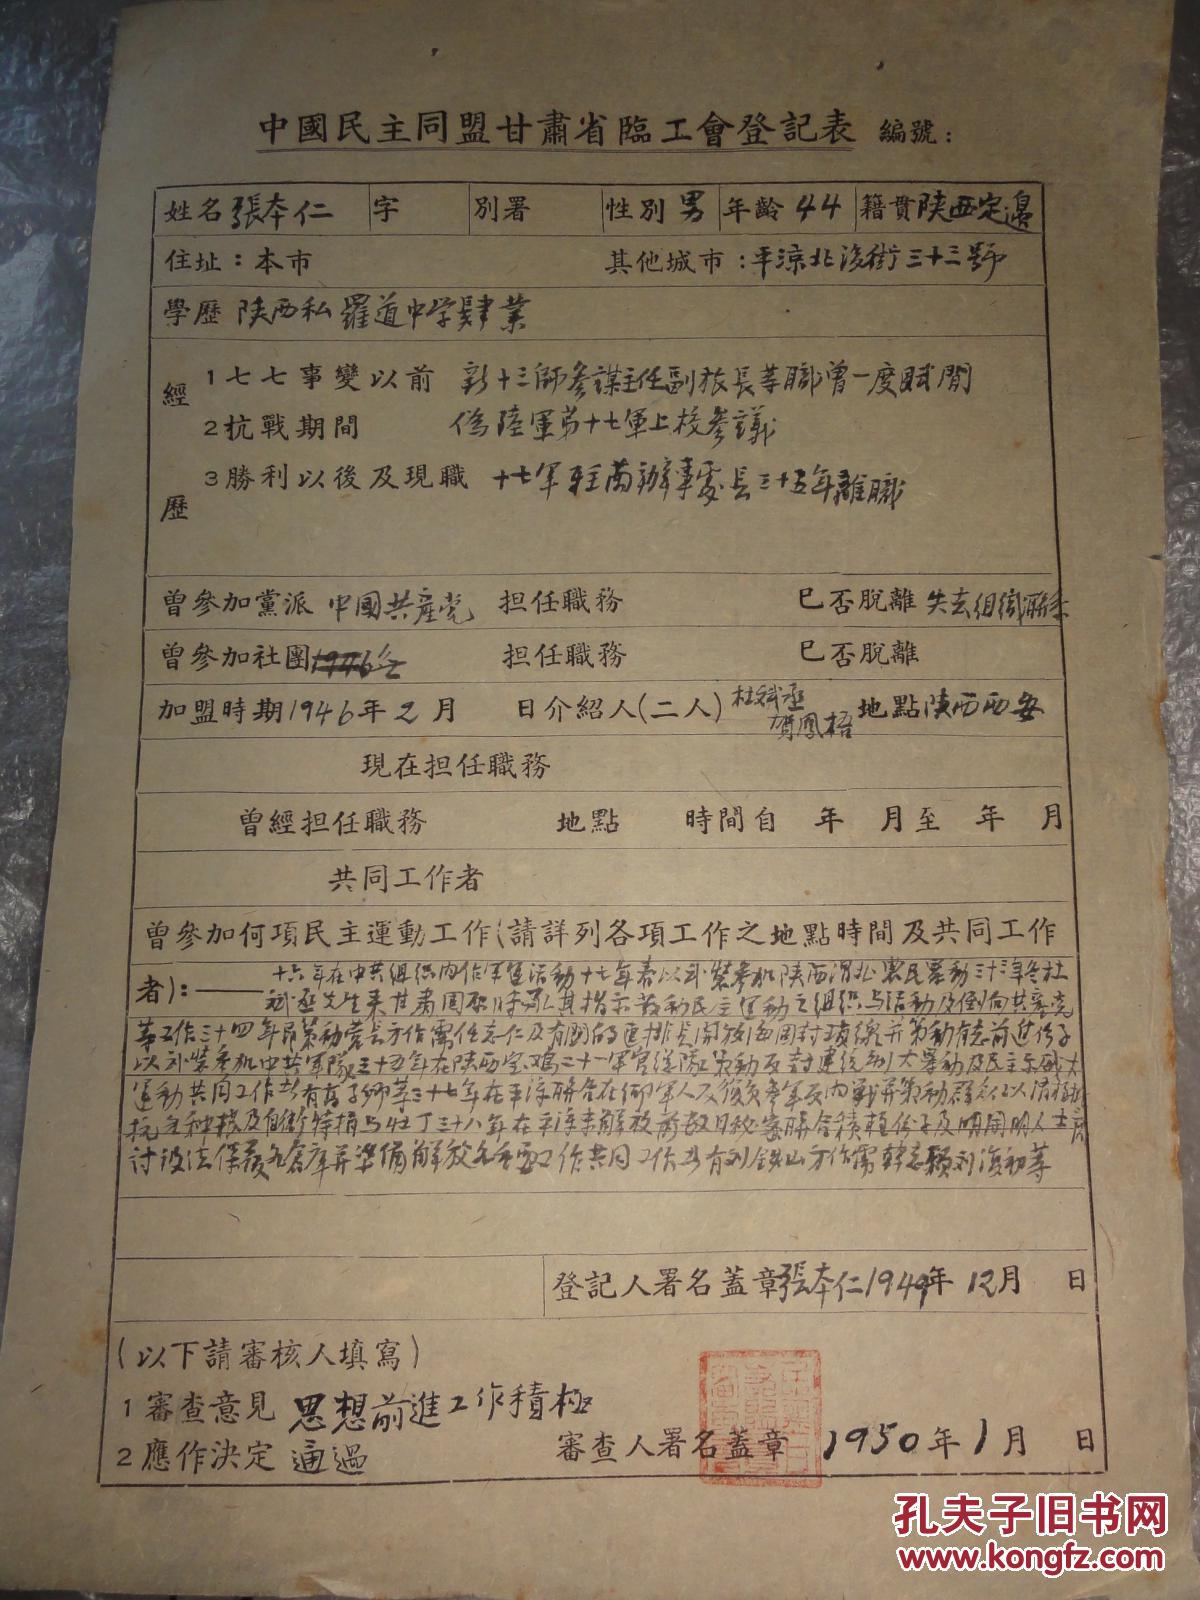 中國民主同盟甘肅省臨工會登記表 編號:
姓名 張本仁 字 別署 性別 男 年齡 44 籍貫 陝西定邊
住址:本市 其他城市:平涼北後街三十三號
學歷 陝西私 道中学肄業
經歷
1 七七事變以前 新十三師參謀主任副旅長等職曾一度賦閒
2 抗戰期間 偽陸軍第十七軍上校參議
3 勝利以後及現職 十七軍駐蘭辦事處長三十五年離職
曾參加黨派 中國共產党 担任職務 已否脫離 失去組織聯系
曾參加社團 担任職務 已否脫離
加盟時期 1946年2月 日 介紹人(二人) 杜斌丞 賀鳳梧 地點 陝西西安
現在担任職務
曾經担任職務 地點 時間自 年 月至 年 月
共同工作者
曾參加何項民主運動工作(請詳列各項工作之地點時間及共同工作
者):—— 十六年在中共組織内作軍運活動十七年春以武裝參加陝西渭北農民暴動三十三年冬杜
斌丞先生来甘肅固原時承其指示發動民主運動之組織与活動及傾向共產党
等工作三十四年 策動營長方作需任志仁及有關的 排長開放海固封鎖線并策動有志前進份子
以武裝參加中共軍隊三十五年在陝西宝鸡二十一軍官總隊策動反封建統制大暴動及民主示威大
運動共同工作者有高子卿等三十七年在平涼聯合在鄉軍人及復員參軍反内戰并策動群众以消極抵
抗 及自衛特捐与壮丁三十八年在平涼未解放前数日秘密聯合積極份子及明開明人士商
討設法保護各倉庫并準備解放各重要工作共同工作者有刘鉄山方作需韓志顯刘復初等
登記人署名蓋章 張本仁 1949年12月 日
(以下請審核人填寫)
1 審查意見 思想前進工作積極
2 應作決定 通過
審查人署名蓋章 1950年1月 日
孔夫子旧书网
www.kongfz.com